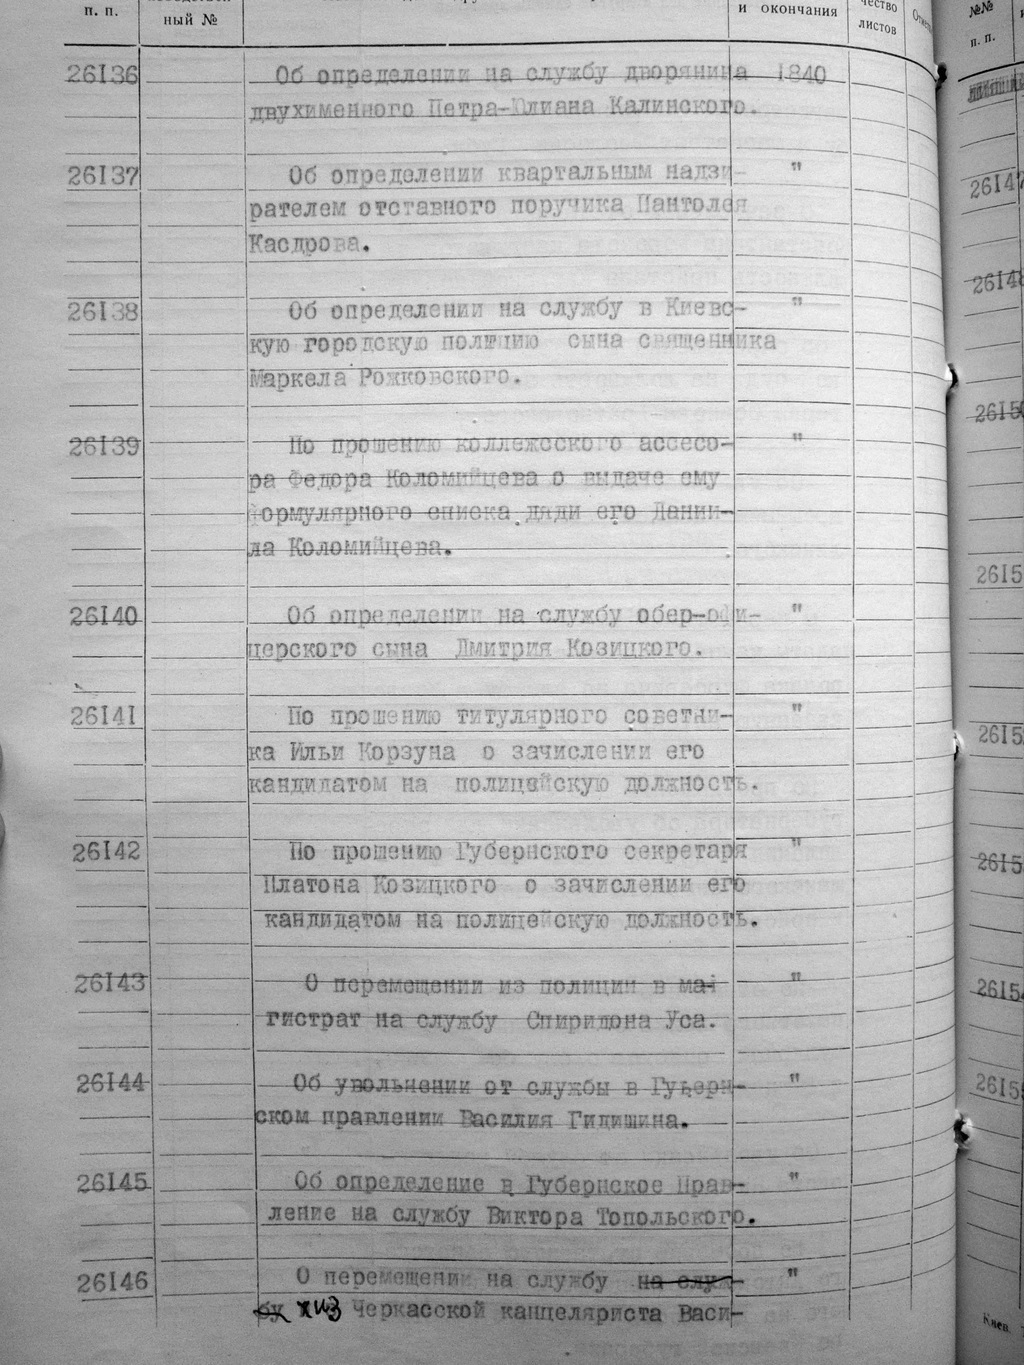 п. п.
ный №
и окончания
чество
листов
26I36 Об определении на службу дворянина 1840
двухименного Петра-Юлиана Калинского.
26I37 Об определении квартальным надзи- "
рателем отставного поручика Пантолея
Касдрова.
26I38 Об определении на службу в Киевс- "
кую городскую полицию сына священника
Маркела Рожковского.
26I39 По прошению коллежсского ассесо- "
ра Федора Коломийцева о выдаче ему
формулярного списка дяди его Дании-
ла Коломийцева.
26I40 Об определении на службу обер-офи- "
церского сына Дмитрия Козицкого.
26I41 По прошению титулярного советни- "
ка Ильи Корзуна о зачислении его
кандидатом на полицейскую должность.
26I42 По прошению Губернского секретаря "
Платона Козицкого о зачислении его
кандидатом на полицейскую должность.
26I43 О перемещении из полиции в ма- "
гистрат на службу Спиридона Уса.
26I44 Об увольнении от службы в Губерн- "
ском правлении Василия Гидишина.
26I45 Об определение в Губернское Прав- "
ление на службу Виктора Топольского.
26I46 О перемещении на службу на служ- "
бу из Черкасской канцеляриста Васи-
№№
п. п.
26I47
26I48
26I5
26I5
26I5
26I5
26I54
26I55
Киев